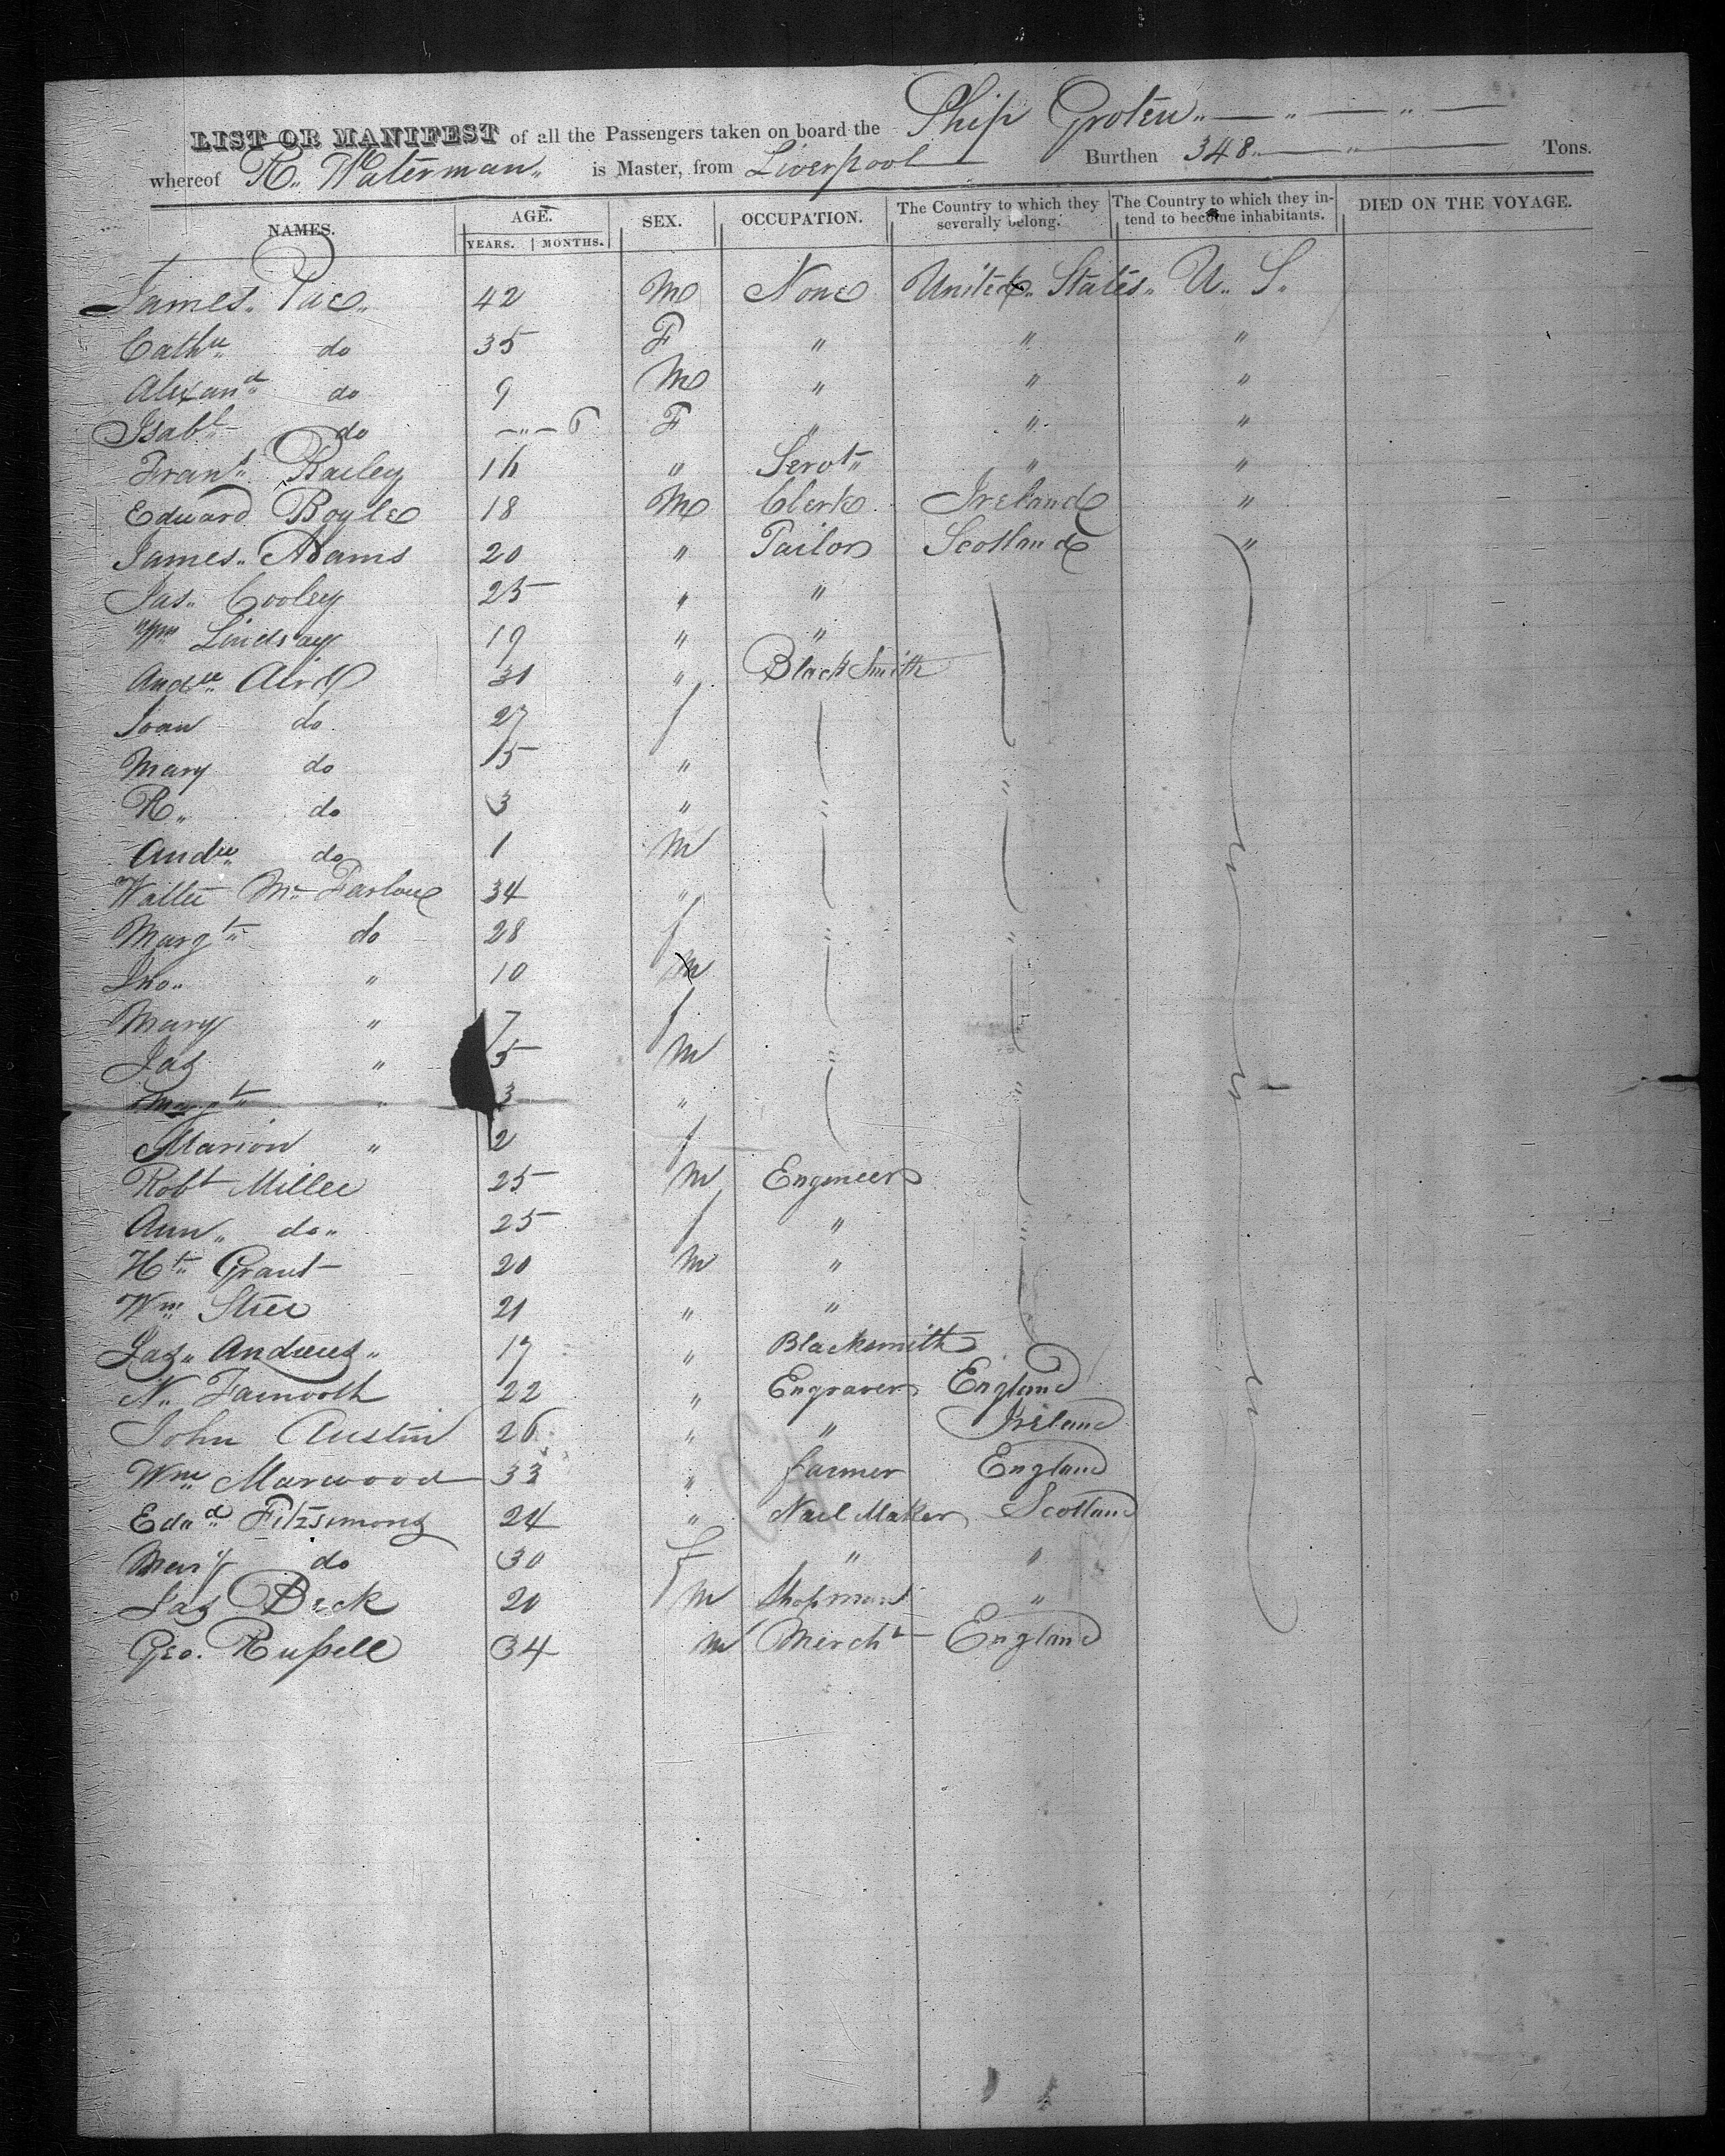 LIST OR MANIFEST of all the Passengers taken on board the Ship Groton
whereof R. Waterman is Master, from Liverpool Burthen 348 Tons.
NAMES. AGE. SEX. OCCUPATION. The Country to which they severally belong. The Country to which they intend to become inhabitants. DIED ON THE VOYAGE.
YEARS. MONTHS.
James 42 M None United States U. S.
do 35 F " " "
Alexand do 9 M " " "
Isabl do 6 F " " "
Bailey 16 " Servt " "
Edward Boyle 18 M Clerk Ireland "
James Adams 20 " Tailor Scotland "
Jas. Cooley 25 " "
Wm Lindsay 19 " "
Andw Aird 31 " Black Smith
Joan do 27 f
Mary do 15 " "
R. do 3 " "
Andw do 1 M
Walter Mc Farlane 34 "
Margt do 28 f " "
Jno. " 10 M
Mary " 7 f
Jas " 5 M "
Margt " 3 " "
Marion " 2 f
Robt Miller 25 M Engineer
Ann do 25 f "
Ht Grant 20 M "
Wm 21 " "
Jas. Andrews 17 " Blacksmith
N. 22 " Engraver England
John Austin 26 " " Ireland
Wm Marwood 33 " farmer England
Edwd Fitzsimons 24 " Nail Maker Scotland
Mary do 30 f " "
Jas Beck 20 M Shopman "
Geo. Russell 34 M Mercht England